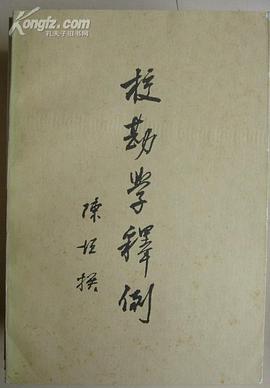 Kongfz.com
孔夫子旧书网
校勘学釋例
陳垣撰